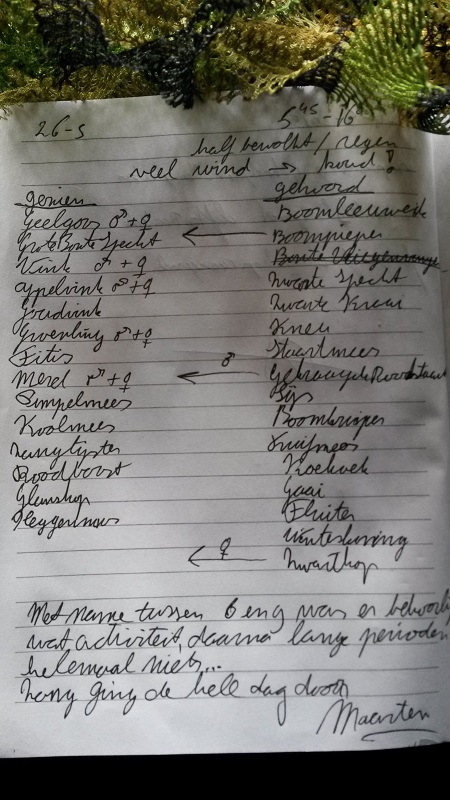 26-5
5⁴⁵-16
half bewolkt / regen
veel wind → koud!
gezien
Geelgors ♂+♀
Grote Bonte Specht
Vink ♂+♀
appelvink ♂+♀
Goudvink
Groenling ♂+♀
Fitis
Merel ♂+♀
Pimpelmees
Koolmees
Zanglijster
Roodborst
Glanskop
Heggenmus
gehoord
Boomleeuwerik
← Boompieper
Bonte Vliegenvanger
Zwarte Specht
Zwarte Kraai
Kneu
Staartmees
← ♂ Gekraagde Roodstaart
Sijs
Boomkruiper
Kuifmees
Koekoek
Gaai
Fluiter
Winterkoning
← ♀ Zwartkop
Met name tussen 6 en 9 was er behoorlijk
wat activiteit, daarna lange perioden
helemaal niets...
Zang ging de hell dag door
Maarten